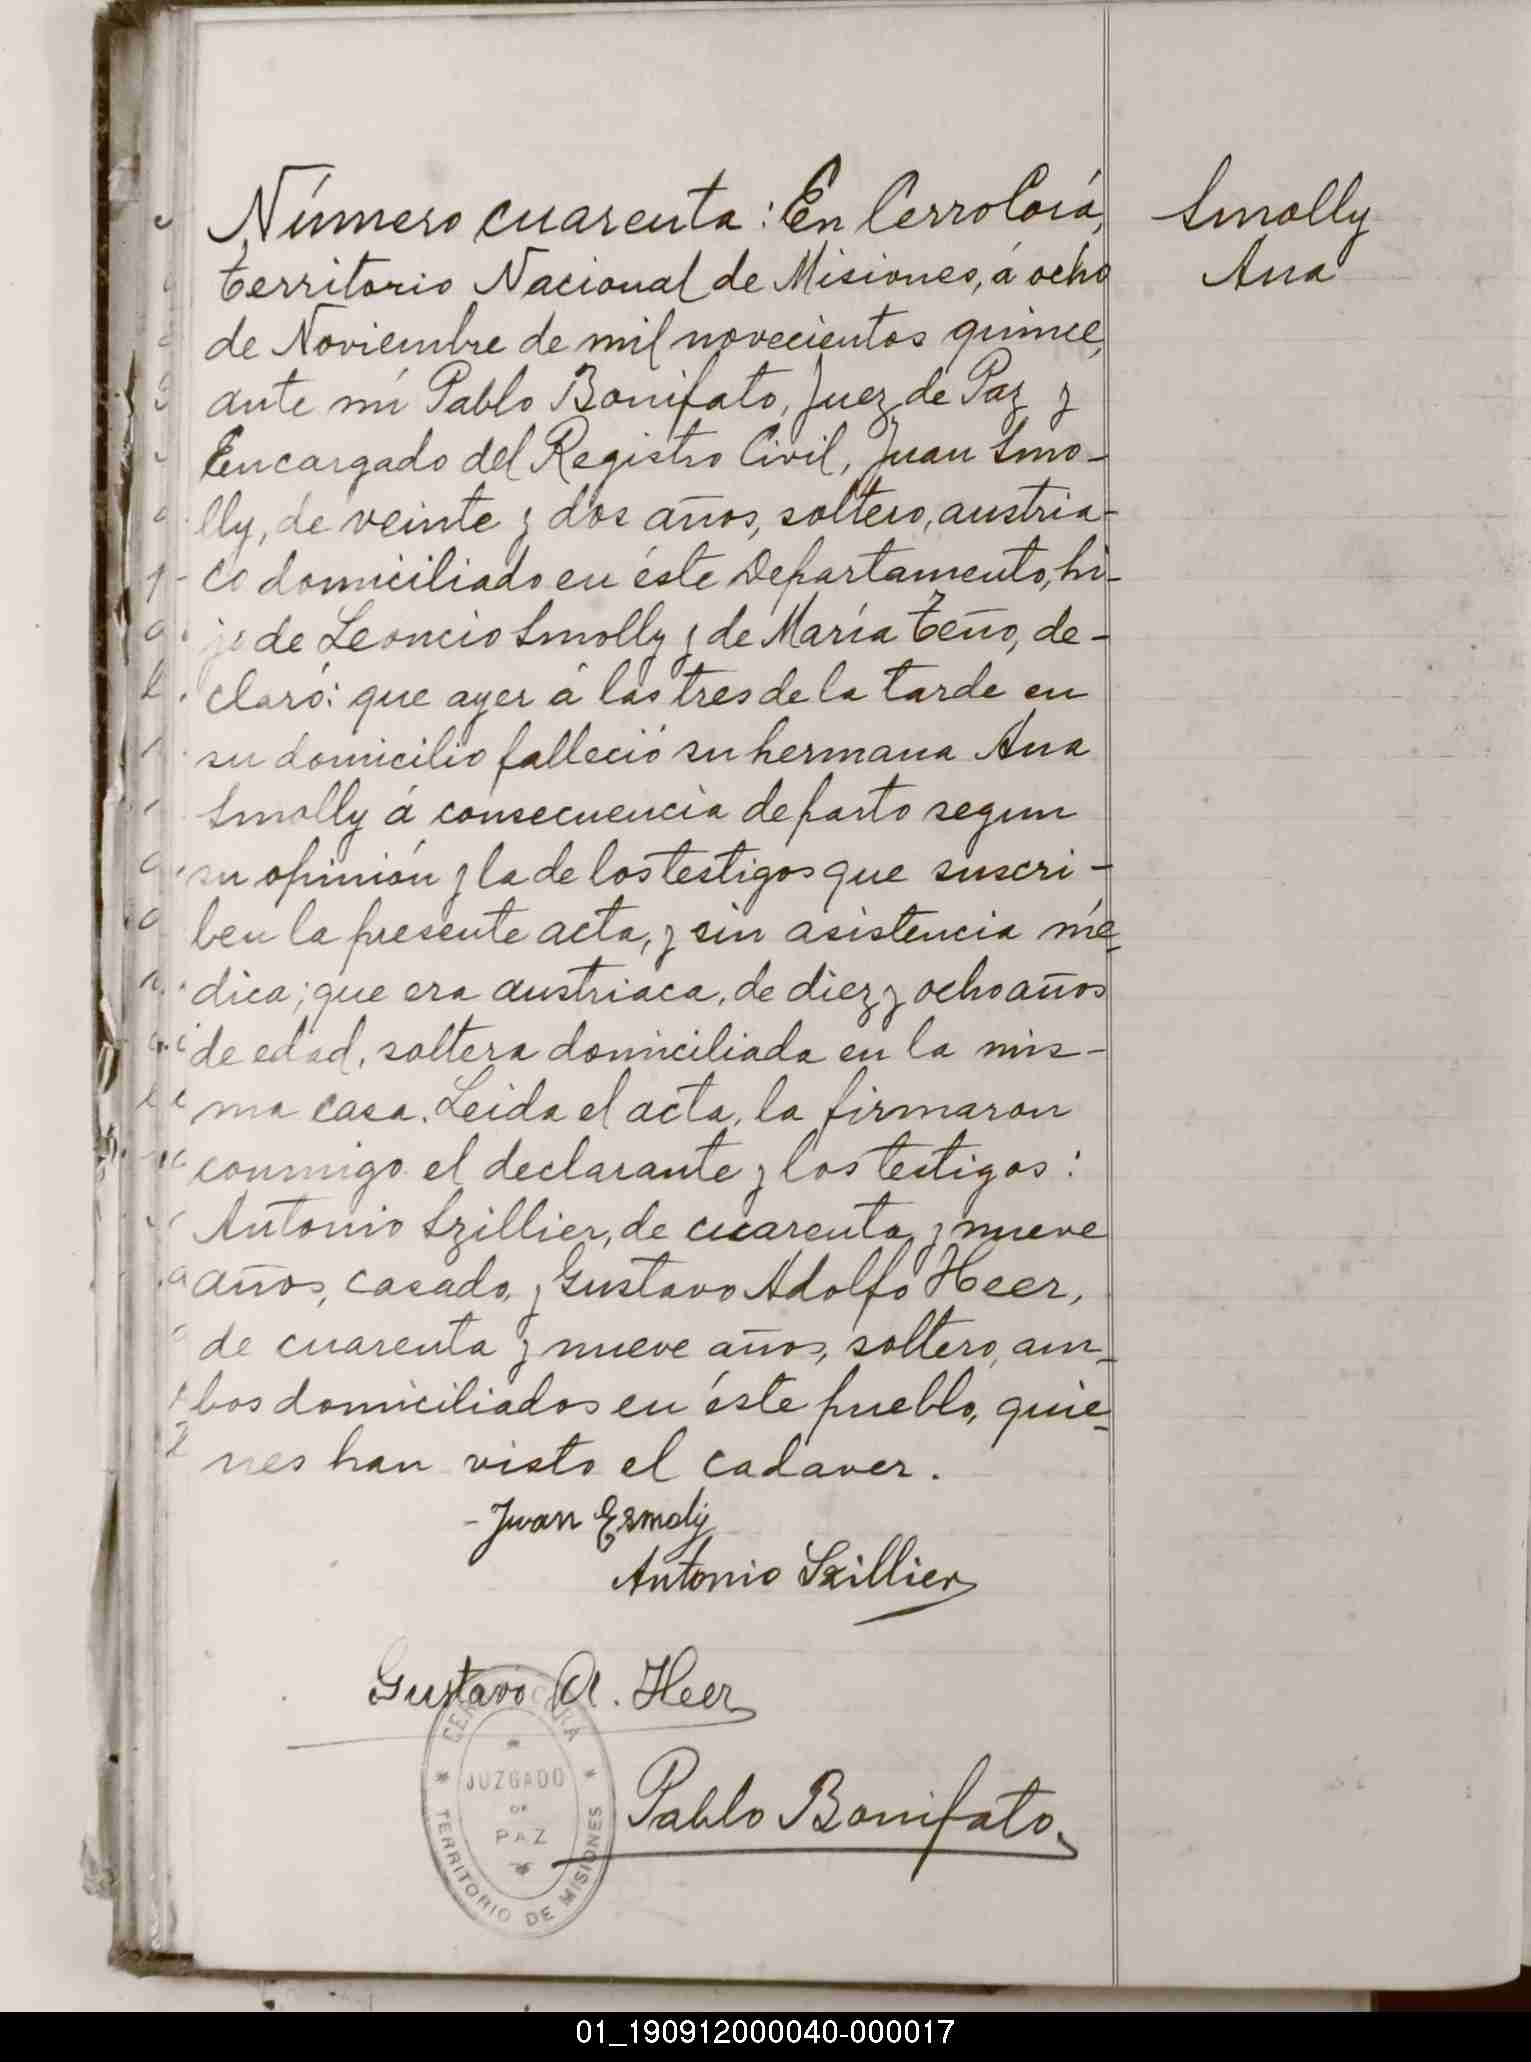 Número cuarenta: En Cerro Corá,
territorio Nacional de Misiones, á ocho
de Noviembre de mil novecientos quince,
ante mi Pablo Bonifato, Juez de Paz y
Encargado del Registro Civil, Juan Smo-
lly, de veinte y dos años, soltero, austria-
co domiciliado en éste Departamento, hi-
jo de Leoncio Smolly y de María Teño, de-
claró: que ayer á las tres de la tarde en
su domicilio falleció su hermana Ana
Smolly á consecuencia de parto segun
su opinión y la de los testigos que suscri-
ben la presente acta, y sin asistencia mé-
dica; que era austriaca, de diez y ocho años
de edad, soltera domiciliada en la mis-
ma casa. Leida el acta, la firmaron
conmigo el declarante y los testigos:
Antonio Szillier, de cuarenta y nueve
años, casado, y Gustavo Adolfo Heer,
de cuarenta y nueve años, soltero, am-
bos domiciliados en éste pueblo, quie-
nes han visto el cadaver.
Juan Esmoly
Antonio Szillier
Gustavo A. Heer
Pablo Bonifato
Smolly
Ana
CERRO CORÁ
JUZGADO
DE
PAZ
TERRITORIO DE MISIONES
01_190912000040-000017